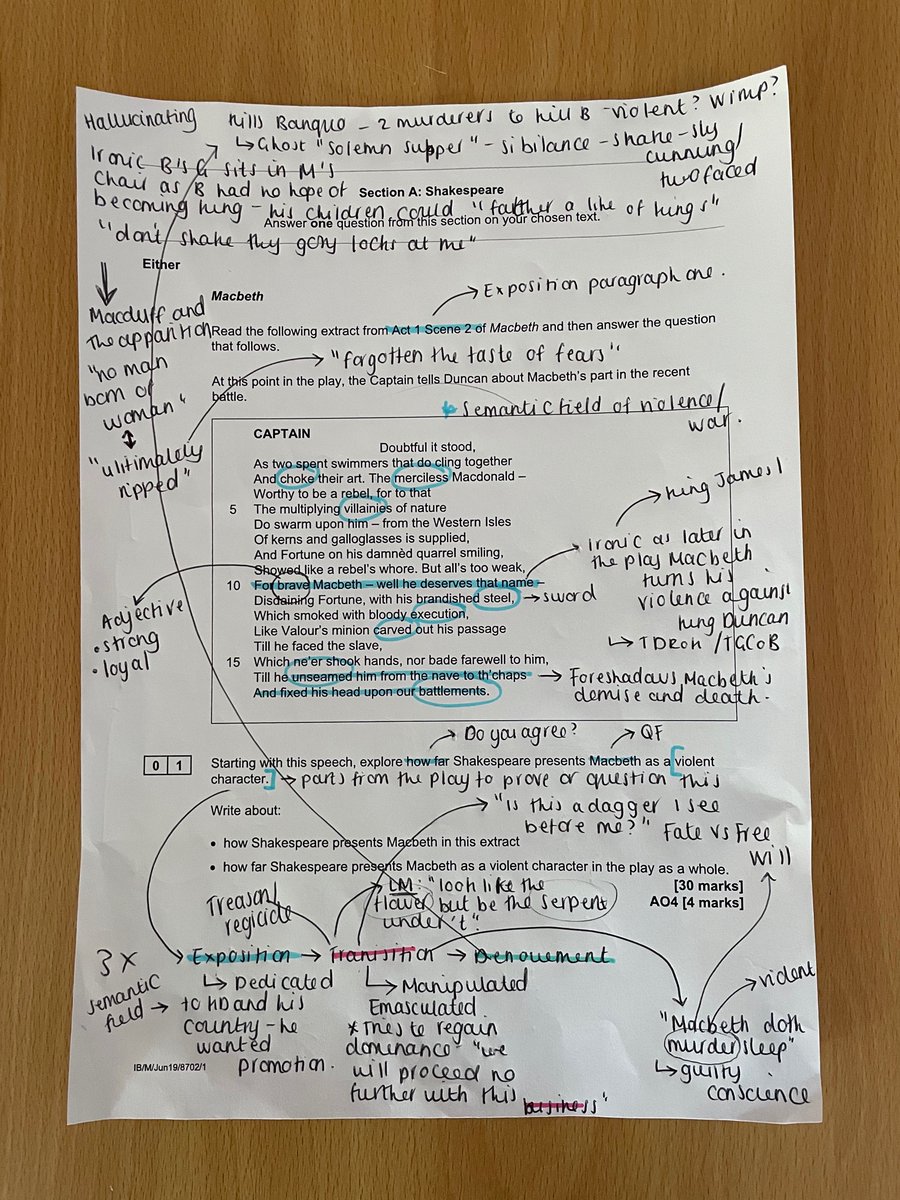 Hallucinating kills Banquo - 2 murderers to kill B - violent? Wimp?
↳ Ghost "Solemn supper" - sibilance - snake - sly
cunning/
two faced
Ironic B's G sits in M's
chair as B had no hope of
becoming king - his children could "farther a like of kings"
"don't shake thy gory locks at me"
Section A: Shakespeare
Answer one question from this section on your chosen text.
Either
Macbeth
Exposition paragraph one.
Read the following extract from Act 1 Scene 2 of Macbeth and then answer the question
that follows.
"forgotten the taste of fears"
At this point in the play, the Captain tells Duncan about Macbeth's part in the recent
battle.
Semantic field of violence/
war.
Macduff and
The apparition
"no man
born of
woman"
"ulitimately
ripped"
CAPTAIN
Doubtful it stood,
As two spent swimmers that do cling together
And choke their art. The merciless Macdonald –
Worthy to be a rebel, for to that
5 The multiplying villainies of nature
Do swarm upon him – from the Western Isles
Of kerns and galloglasses is supplied,
And Fortune on his damnèd quarrel smiling,
Showed like a rebel's whore. But all's too weak,
10 For brave Macbeth – well he deserves that name –
Disdaining Fortune, with his brandished steel,
Which smoked with bloody execution,
Like Valour's minion carved out his passage
Till he faced the slave,
15 Which ne'er shook hands, nor bade farewell to him,
Till he unseamed him from the nave to th'chaps
And fixed his head upon our battlements.
King James I
Ironic as later in
the play Macbeth
turns his
violence against
King Duncan
↳ TDROK /TGCOB
sword
Foreshadows Macbeth's
demise and death.
Adjective
• strong
• loyal
Do you agree?
QF
0 1
Starting with this speech, explore how far Shakespeare presents Macbeth as a violent
character.
parts from the play to prove or question this
Write about:
"Is this a dagger I see
before me?" Fate vs Free
Will
• how Shakespeare presents Macbeth in this extract
• how far Shakespeare presents Macbeth as a violent character in the play as a whole.
[30 marks]
AO4 [4 marks]
LM: "look like the
flower but be the serpent
under't".
Treason/
regicide
3x
semantic
field →
Exposition → Transition → Denouement
↳ Dedicated
to HD and his
country - he
wanted
promotion.
↳ Manipulated
Emasculated.
* Tries to regain
dominance - "we
will proceed no
further with this
business"
violent
"Macbeth doth
murder sleep"
↳ guilty
conscience
IB/M/Jun19/8702/1